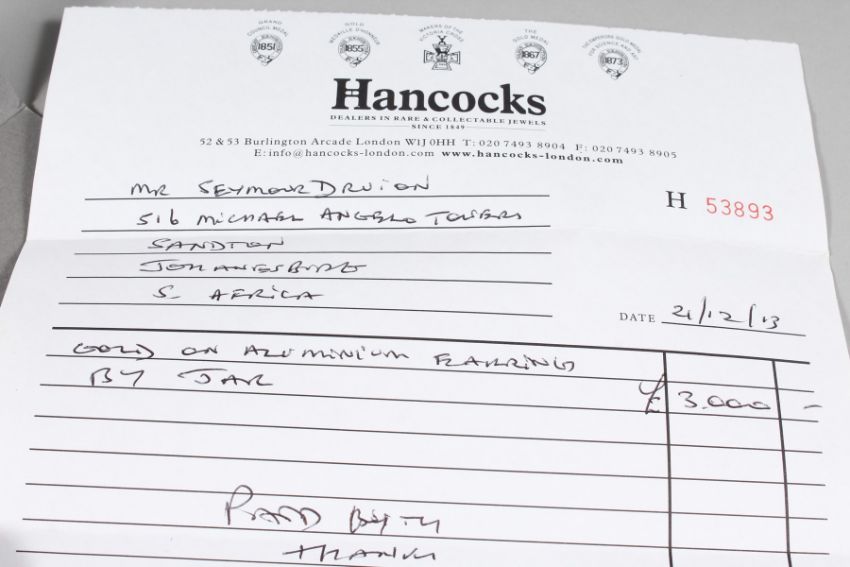 GRAND COUNCIL MEDAL 1851
GOLD MEDAILLE D'HONNEUR 1855
MAKERS OF THE VICTORIA CROSS
THE GOLD MEDAL 1867
THE EMPERORS GOLD MEDAL FOR SCIENCE AND ART 1873
Hancocks
DEALERS IN RARE & COLLECTABLE JEWELS
SINCE 1849
52 & 53 Burlington Arcade London W1J 0HH T: 020 7493 8904 F: 020 7493 8905
E: info@hancocks-london.com www.hancocks-london.com
MR SEYMOUR DRUION
516 MICHAEL ANGELO TOWERS
SANDTON
JOHANESBURG
S. AFRICA
H 53893
DATE 21/12/13
GOLD ON ALUMINIUM EARRINGS
BY JAR £ 3.000 -
PAID
THANKS